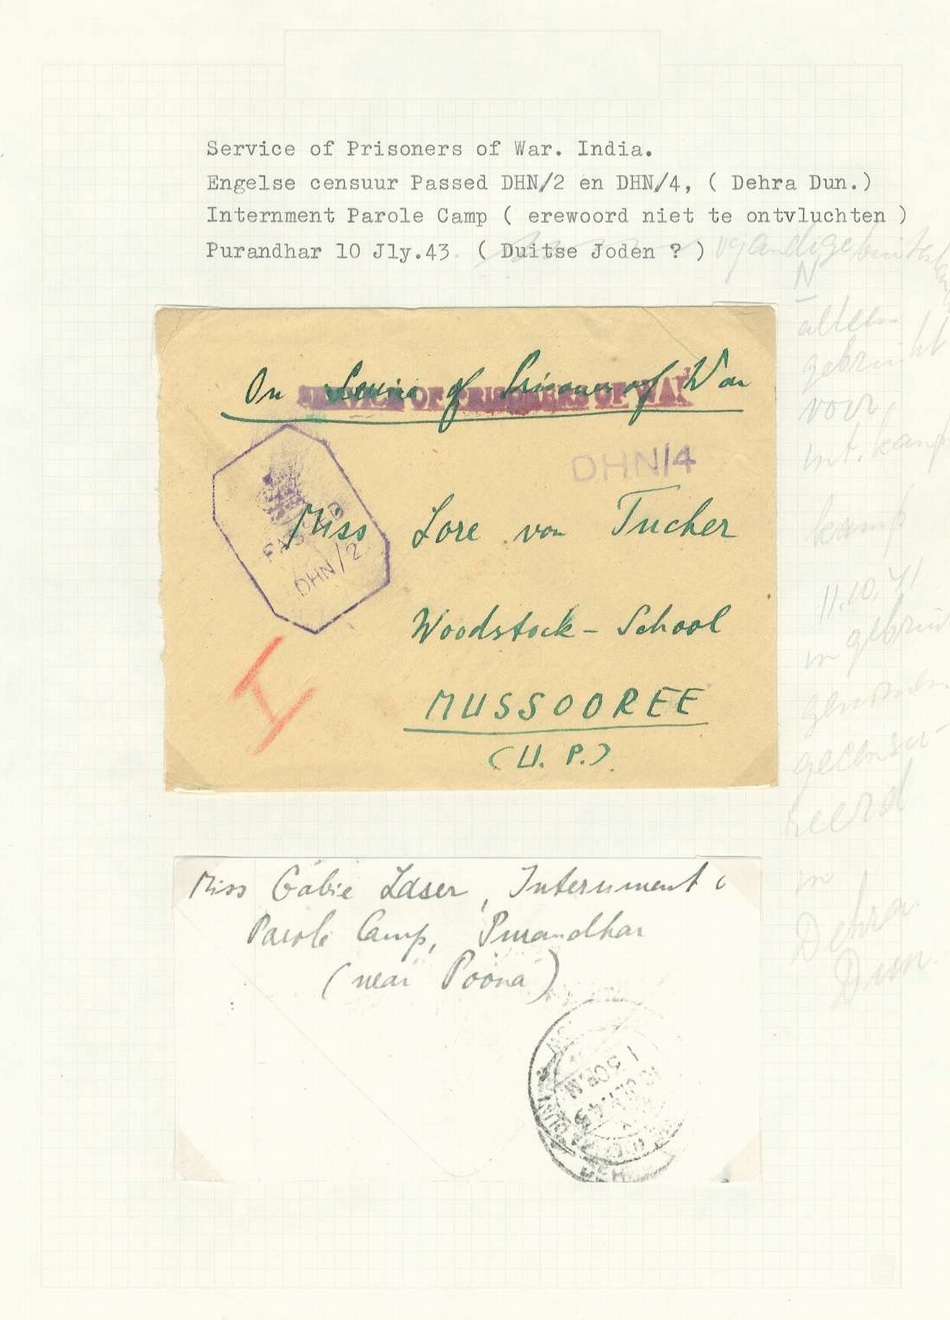 Service of Prisoners of War. India.
Engelse censuur Passed DHN/2 en DHN/4, ( Dehra Dun.)
Internment Parole Camp ( erewoord niet te ontvluchten )
Purandhar 10 Jly.43. ( Duitse Joden ? )
N
alleen
gebruikt
voor
int. kamp
kamp
11.10.41
in gebruik
genomen
gecensu-
reerd
in
Dehra
Dun.
On Service of Prisoner of War
SERVICE OF PRISONERS OF WAR
DHN/4
PASSED
DHN/2
Miss Lore von Tucher
Woodstock - School
MUSSOOREE
(U. P.)
I
Miss Gabie Laser, Internment
Parole Camp, Purandhar
(near Poona)
1 30 P.M